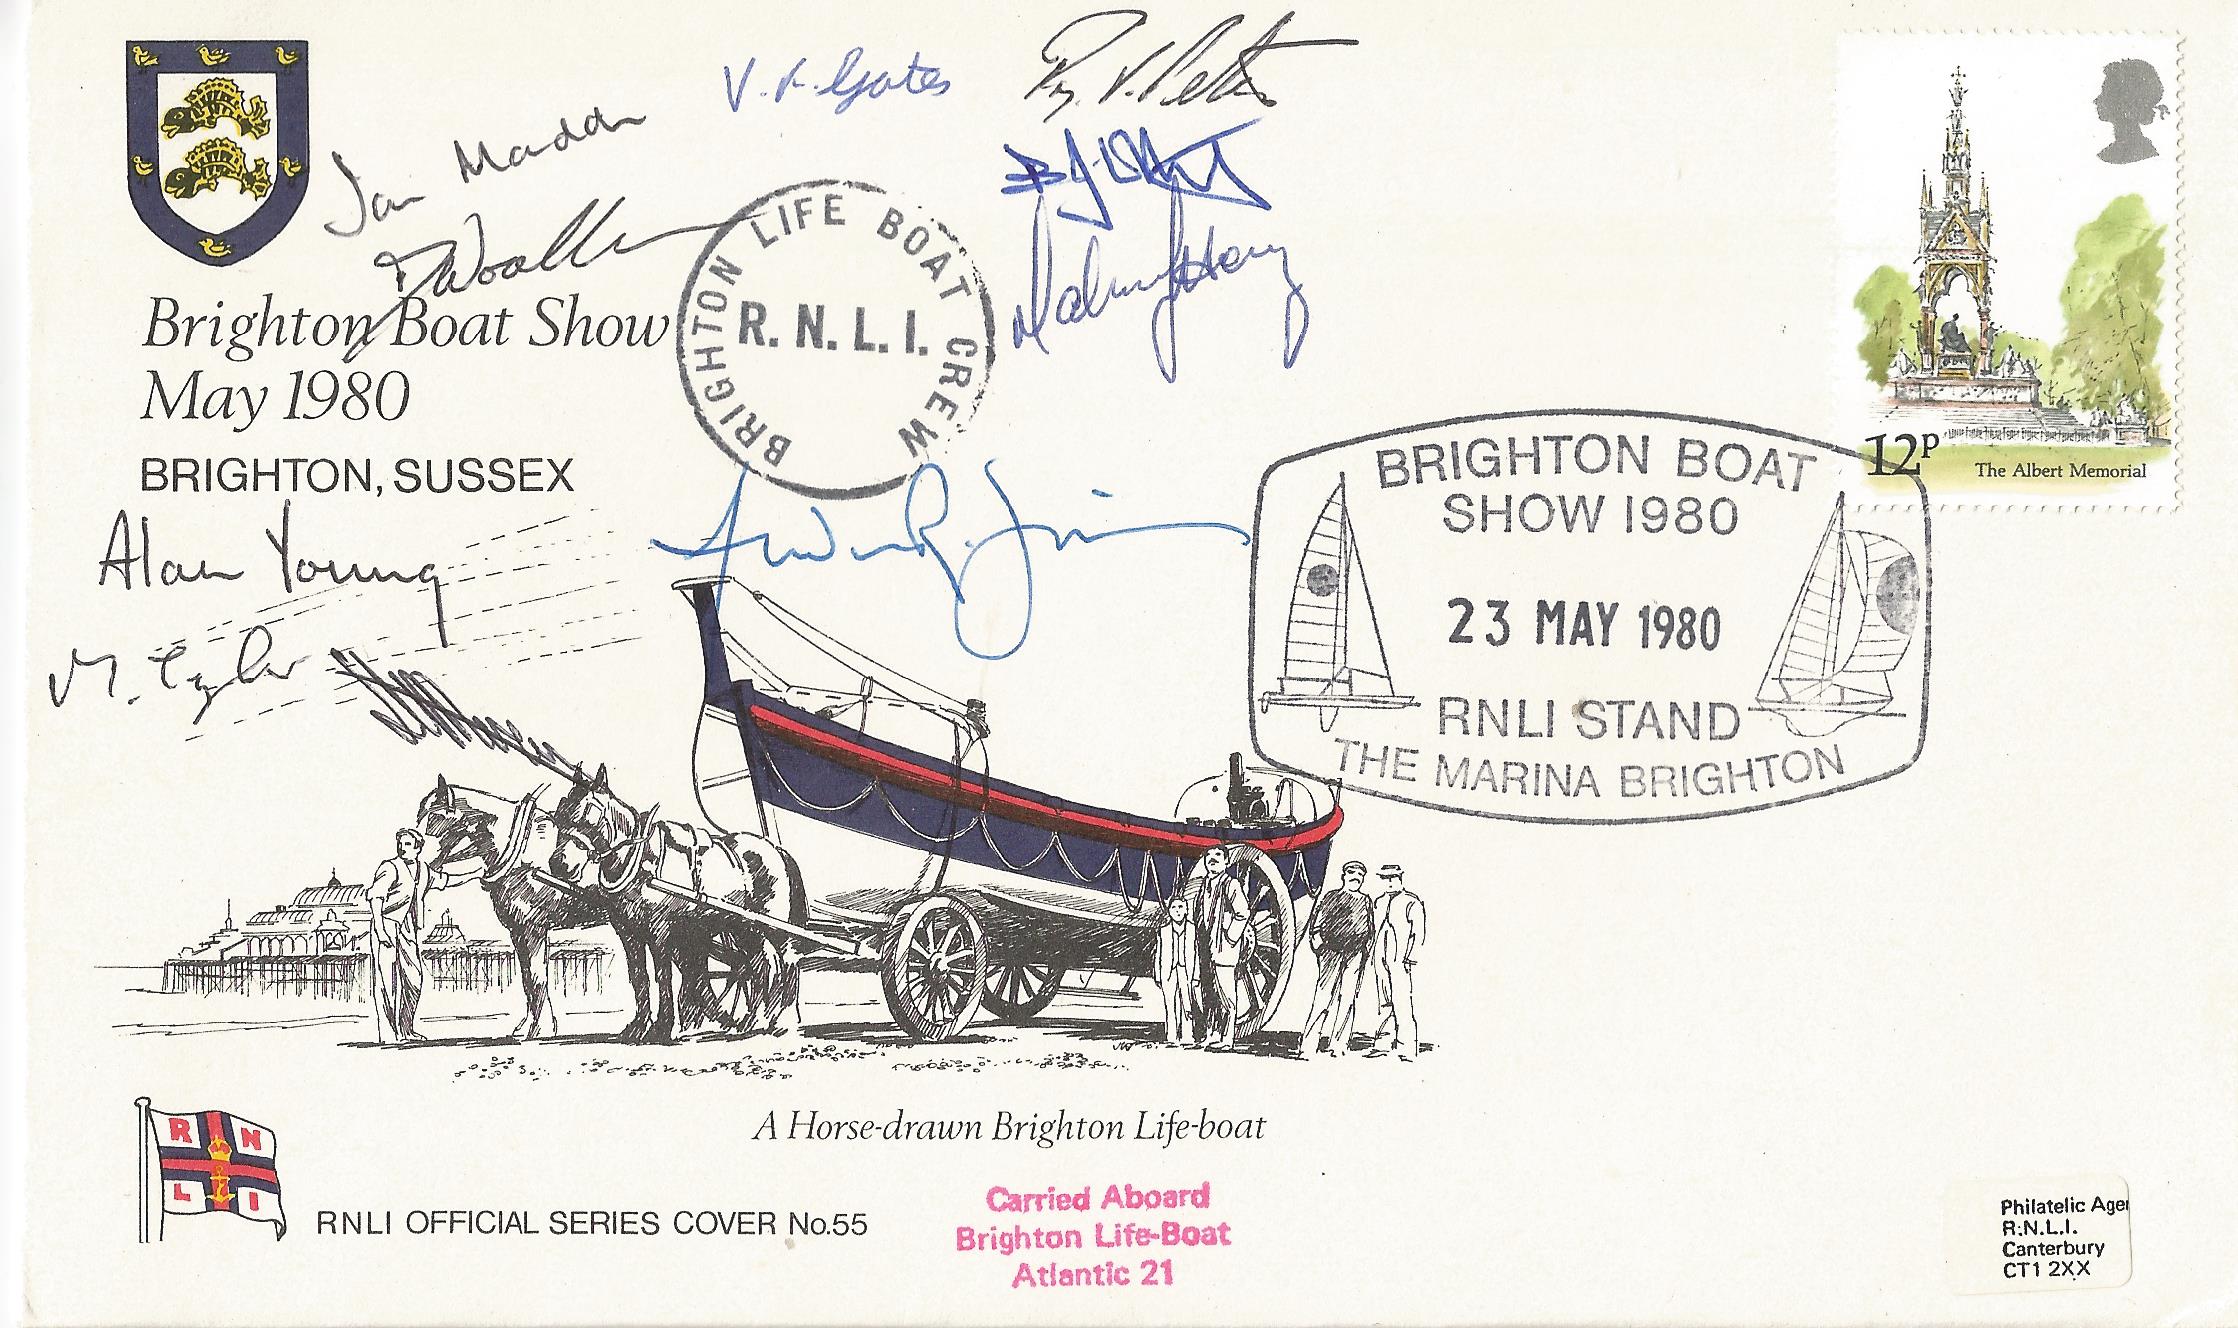 V. F. Gates
Brighton Boat Show
May 1980
BRIGHTON, SUSSEX
BRIGHTON LIFE BOAT CREW
R. N. L. I.
Alan Young
12P
The Albert Memorial
BRIGHTON BOAT
SHOW 1980
23 MAY 1980
RNLI STAND
THE MARINA BRIGHTON
A Horse-drawn Brighton Life-boat
R N
L I
RNLI OFFICIAL SERIES COVER No.55
Carried Aboard
Brighton Life-Boat
Atlantic 21
Philatelic Agen
R.N.L.I.
Canterbury
CT1 2XX